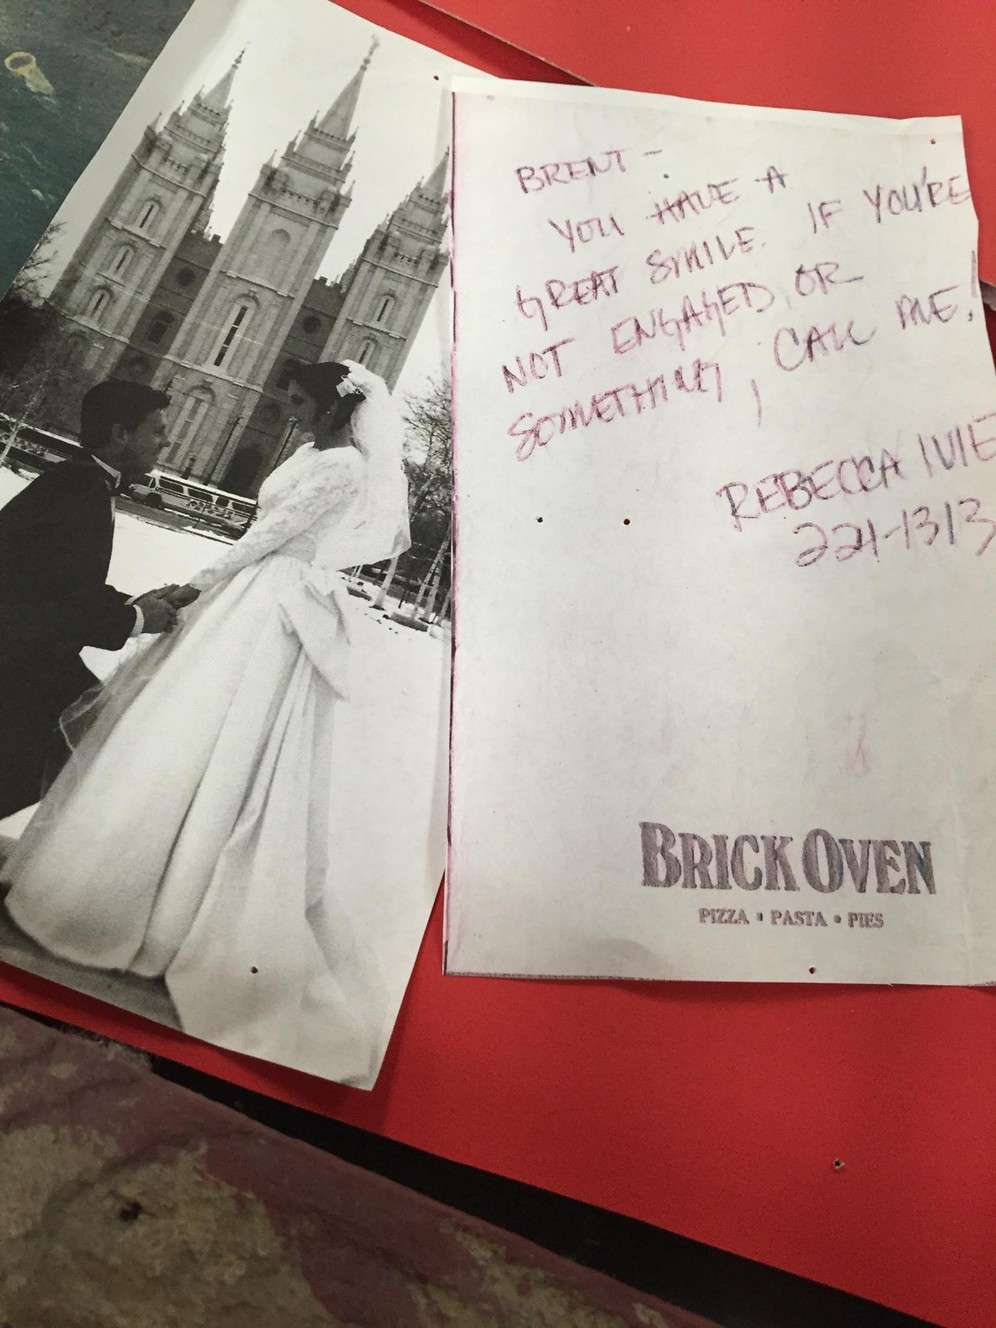 BRENT -
YOU HAVE A
GREAT SMILE. IF YOU'RE
NOT ENGAGED OR
SOMETHING, CALL ME!
REBECCA IVIE
224-1313
BRICK OVEN
PIZZA • PASTA • PIES